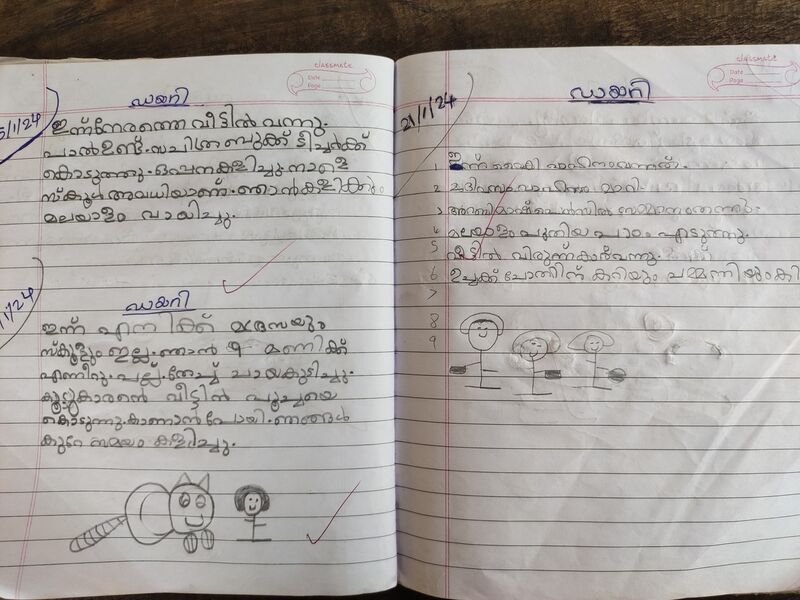 classmate
Date
Page
5/1/24
ഡയറി
ഇന്ന് നേരത്തെ വീട്ടിൽ വന്നു.
പാൽ ഉണ്ട്. സചിത്ര ബുക്ക് ടീച്ചർക്ക്
കൊടുത്തു. ഒപ്പന കളിച്ചു നാളെ
സ്കൂൾ അവധിയാണ്. ഞാൻ കളിക്കും
മലയാളം വായിച്ചു.
/1/24
ഡയറി
ഇന്ന് എനിക്ക് മദ്രസയും
സ്കൂളും ഇല്ല. ഞാൻ 9 മണിക്ക്
എണീറ്റു. പല്ല് തേച്ച് ചായകുടിച്ചു.
കൂട്ടുകാരന്റെ വീട്ടിൽ പൂച്ചയെ
കൊടുന്നു. കാണാൻ പോയി. ഞങ്ങൾ
കുറേ സമയം കളിച്ചു.
classmate
Date
Page
21/1/24
ഡയറി
ഇന്ന്
2
3
4 മലയാളം പുതിയ പാഠം എടുത്തു.
5 വീട്ടിൽ വിരുന്ന്കാർ വന്നു.
6 ഉച്ചക്ക് ചോറിന് കറിയും
7
8
9